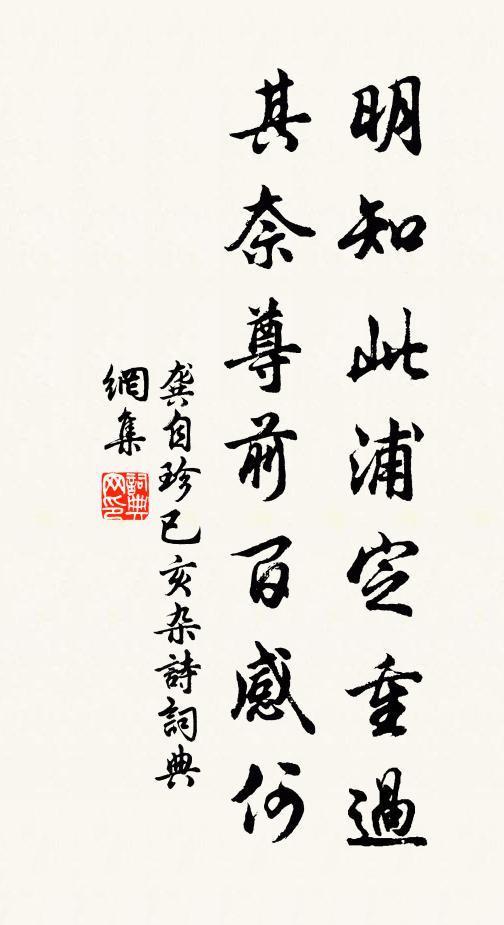 明知此浦定重過
其奈尊前百感何
龔自珍己亥杂詩詞典
網集
詞典
网印